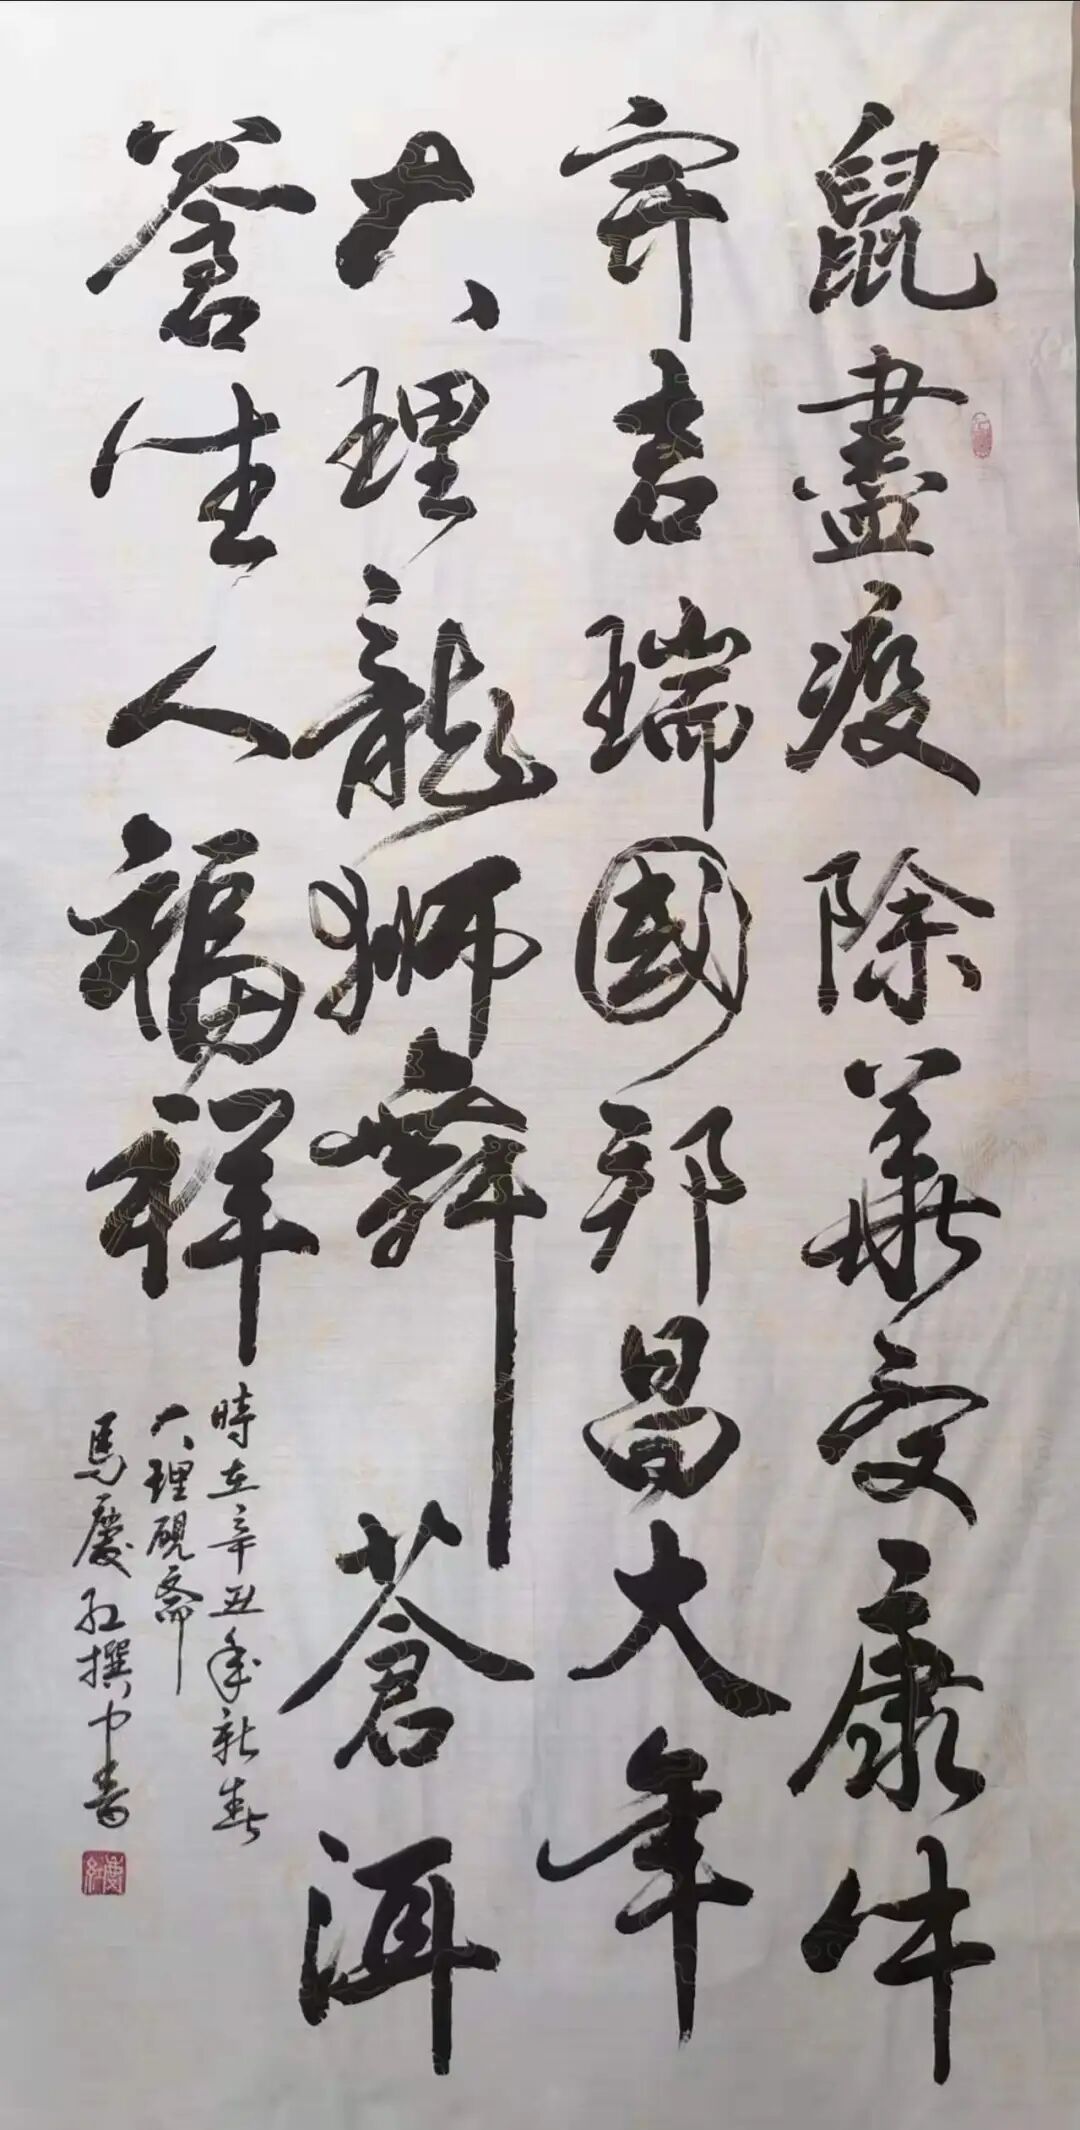 鼠盡疫除華夏康牛
年吉瑞國邦昌大年
大理龍獅舞蒼洱
蒼生人福祥
時在辛丑年新春
大理硯齋
馬慶紅撰書
慶紅